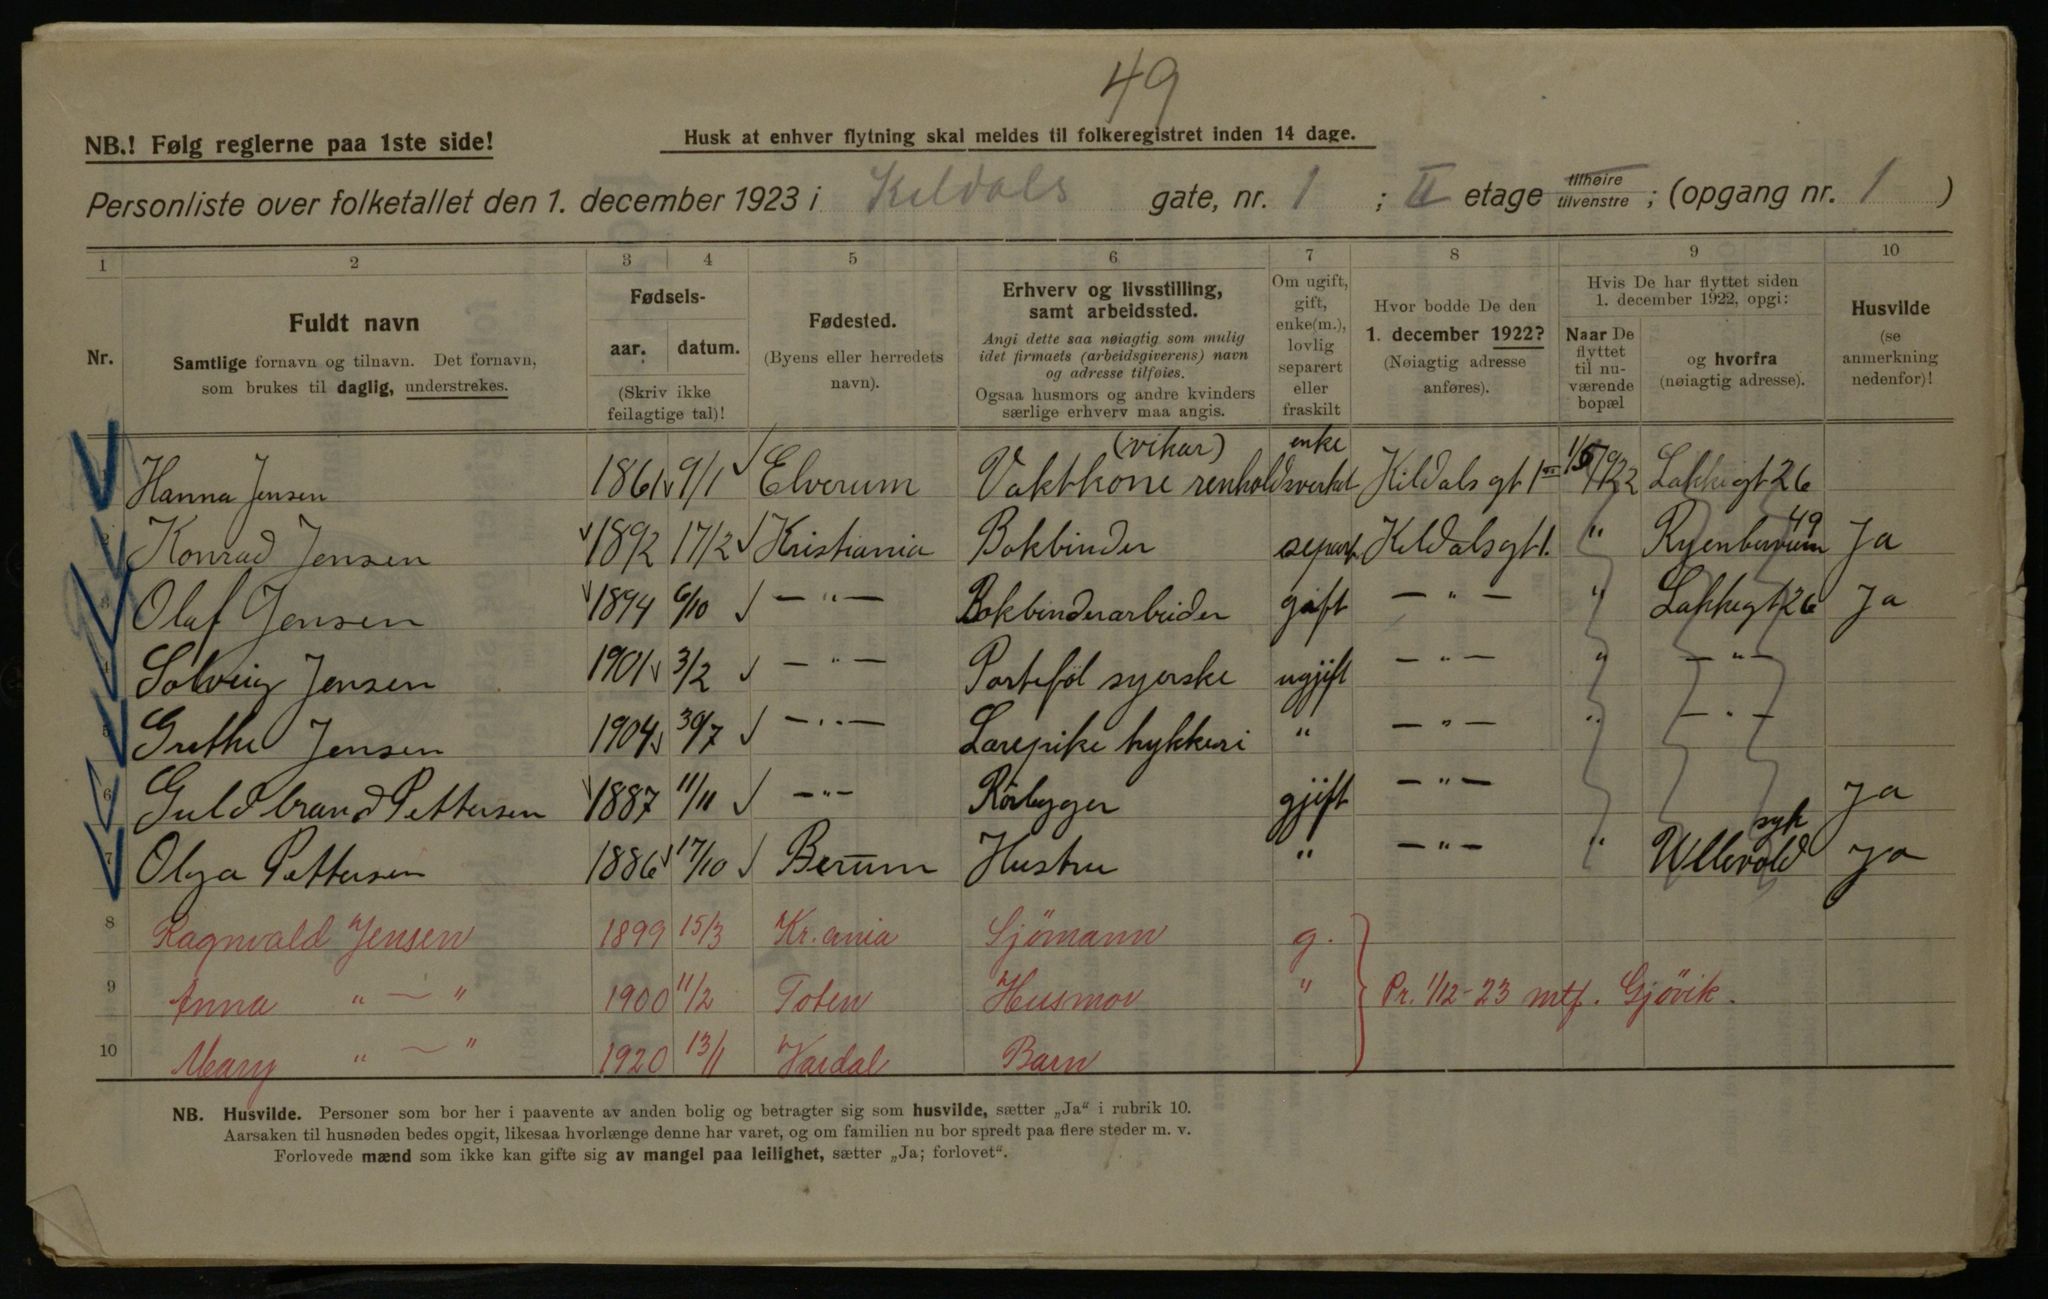 49
NB.! Følg reglerne paa 1ste side!
Husk at enhver flytning skal meldes til folkeregistret inden 14 dage.
Personliste over folketallet den 1. december 1923 i Kildals gate, nr. 1 ; II etage tilhøire tilvenstre ; (opgang nr. 1 )
1 2 3 4 5 6 7 8 9 10
Nr.
Fuldt navn
Samtlige fornavn og tilnavn. Det fornavn,
som brukes til daglig, understrekes.
Fødsels-
aar. datum.
(Skriv ikke
feilagtige tal)!
Fødested.
(Byens eller herredets
navn).
Erhverv og livsstilling,
samt arbeidssted.
Angi dette saa nøiagtig som mulig
idet firmaets (arbeidsgiverens) navn
og adresse tilføies.
Ogsaa husmors og andre kvinders
særlige erhverv maa angis.
Om ugift,
gift,
enke(m.),
lovlig
separert
eller
fraskilt
Hvor bodde De den
1. december 1922?
(Nøiagtig adresse
anføres).
Hvis De har flyttet siden
1. december 1922, opgi:
Naar De
flyttet
til nu-
værende
bopæl
og hvorfra
(nøiagtig adresse).
Husvilde
(se
anmerkning
nedenfor)!
Hanna Jensen 1861 9/1 Elverum Vaktkone (vikar) renholdsverket enke Kildals gt 1 1/5 1922 Lakkegt 26
Konrad Jensen 1892 17/2 Kristiania Bokbinder separt. Kildalsgt 1. " 49 Ja
3 Olaf Jensen 1894 6/10 — " — Bokbinderarbeider gift — " — " Lakkegt 26 Ja
4 Solveig Jensen 1901 3/2 — " — Portefól syerske ugjift — " — " — " —
5 Grethe Jensen 1904 30/7 — " — Larepike trykkeri " — " — " — " —
6 Guldbrand Pettersen 1887 11/11 — " — Rörlegger gjift — " — Ja
7 Olga Pettersen 1886 17/10 Berum Hustru " — " — " Ullevold syk Ja
8 Ragnvald Jensen 1899 15/3 Kr.ania Sjömann g.
9 Anna " — " 1900 11/2 Toten Husmor " Pr. 1/12-23 mtf. Gjövik.
10 Mary " — " 1920 13/1 Vardal Barn
NB. Husvilde. Personer som bor her i paavente av anden bolig og betragter sig som husvilde, sætter „Ja" i rubrik 10.
Aarsaken til husnøden bedes opgit, likesaa hvorlænge denne har varet, og om familien nu bor spredt paa flere steder m. v.
Forlovede mænd som ikke kan gifte sig av mangel paa leilighet, sætter „Ja; forlovet".